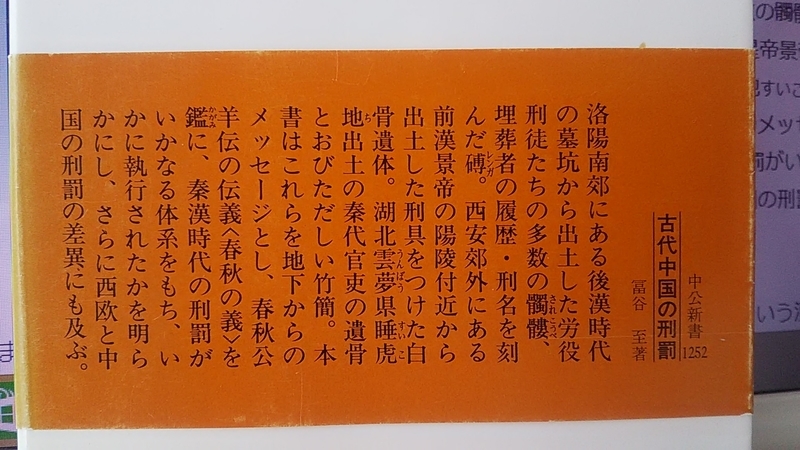 中公新書 1252
古代中国の刑罰
冨谷 至著
洛陽南郊にある後漢時代
の墓坑から出土した労役
刑徒たちの多数の髑髏、
埋葬者の履歴・刑名を刻
んだ磚。西安郊外にある
前漢景帝の陽陵付近から
出土した刑具をつけた白
骨遺体。湖北雲夢県睡虎
地出土の秦代官吏の遺骨
とおびただしい竹簡。本
書はこれらを地下からの
メッセージとし、春秋公
羊伝の伝義〈春秋の義〉を
鑑に、秦漢時代の刑罰が
いかなる体系をもち、い
かに執行されたかを明ら
かにし、さらに西欧と中
国の刑罰の差異にも及ぶ。